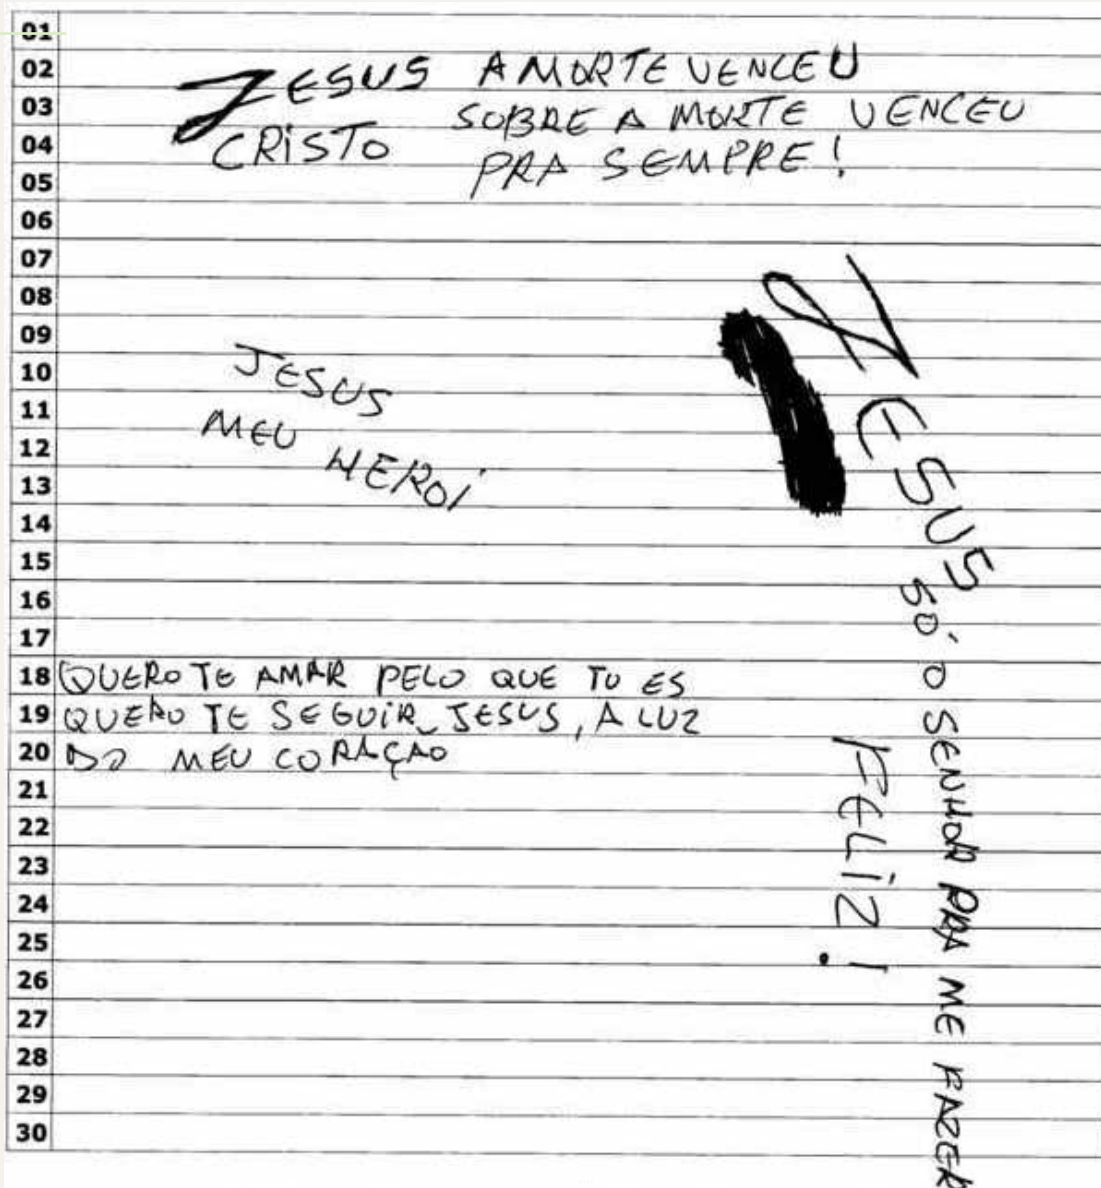 01
02
03
04
05
06
07
08
09
10
11
12
13
14
15
16
17
18
19
20
21
22
23
24
25
26
27
28
29
30
JESUS A MORTE VENCEU
CRISTO SOBRE A MORTE VENCEU
PRA SEMPRE!
JESUS
MEU HEROi
JESUS
SÓ O SENHOR PRA ME FAZER
FELiZ!
QUERO TE AMAR PELO QUE TU ES
QUERO TE SEGUiR JESUS, A LUZ
DO MEU CORAÇÃO